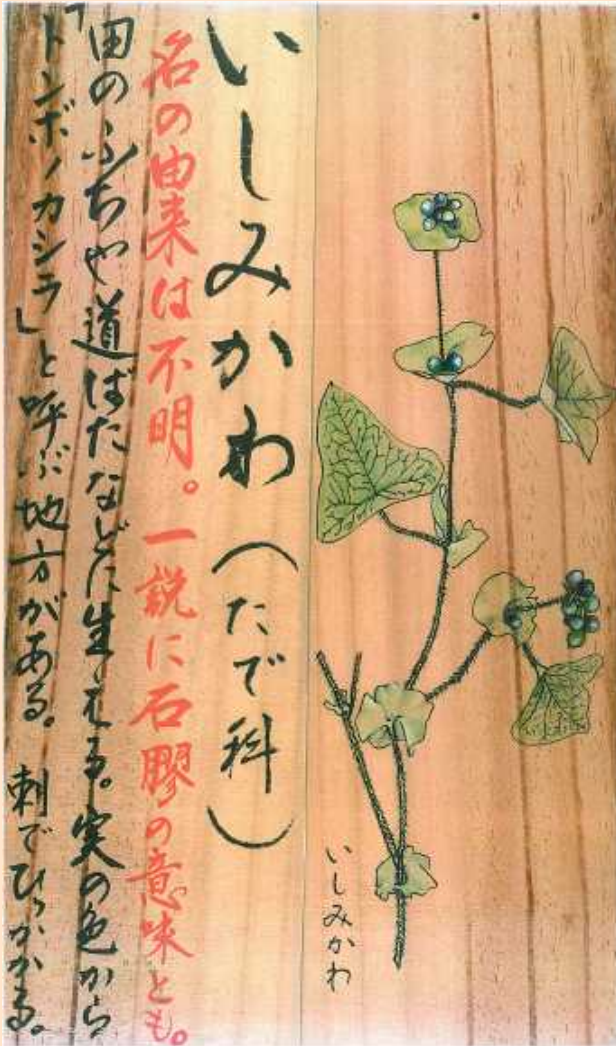 いしみかわ(たで科)
名の由来は不明。一説に石膠の意味とも。
田のふちや道ばたなどに生える。実の色から
「トンボノカシラ」と呼ぶ地方がある。 刺でひっかかる。
いしみかわ